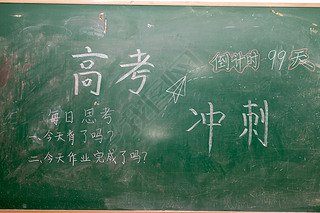 倒计时 99天
高考
冲刺
每日思考
一.今天背了吗?
二.今天作业完成了吗?